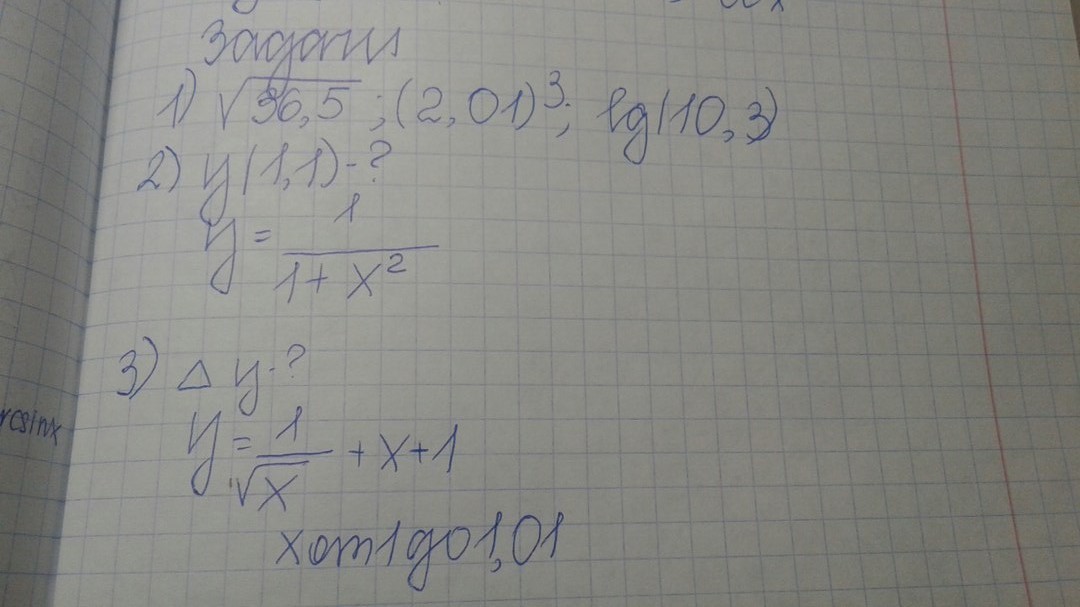 Задачи
1) √36,5 ; (2,01)³; lg(10,3)
2) y(1,1)-?
y = 1/(1 + x²)
3) Δ y-?
y = 1/√x + x + 1
x от 1 до 1,01
rcsinx